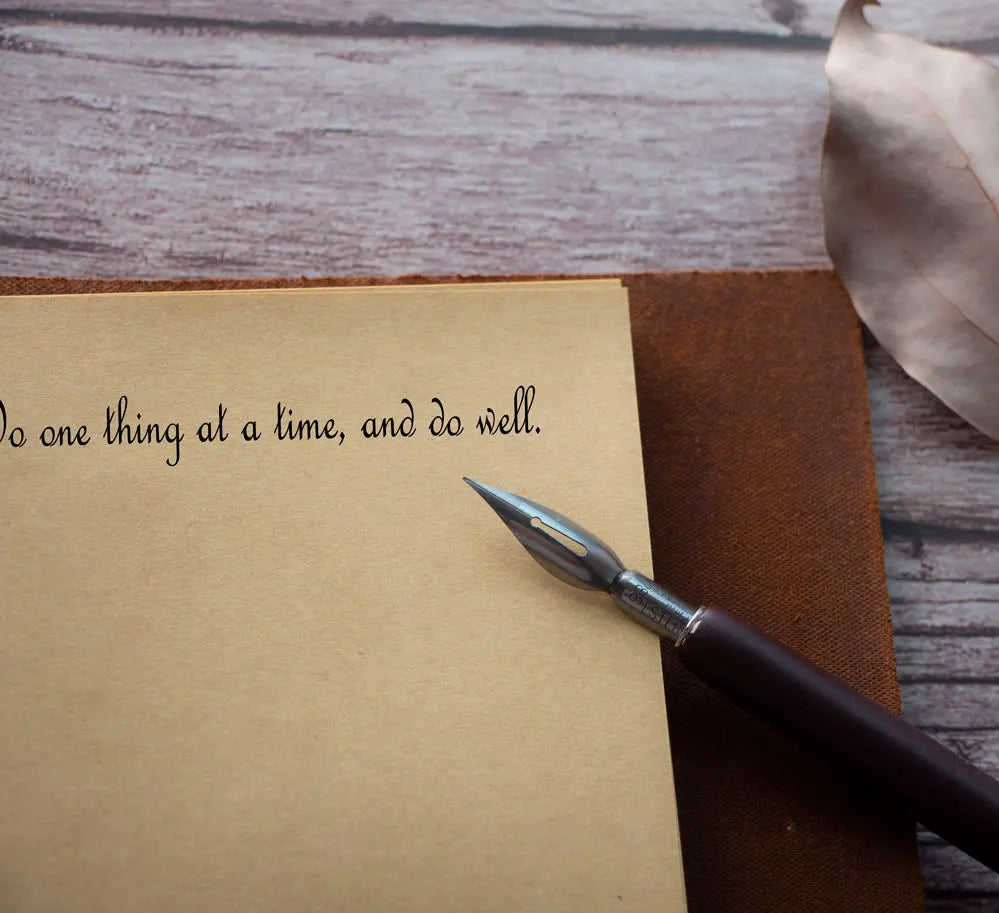 Do one thing at a time, and do well.